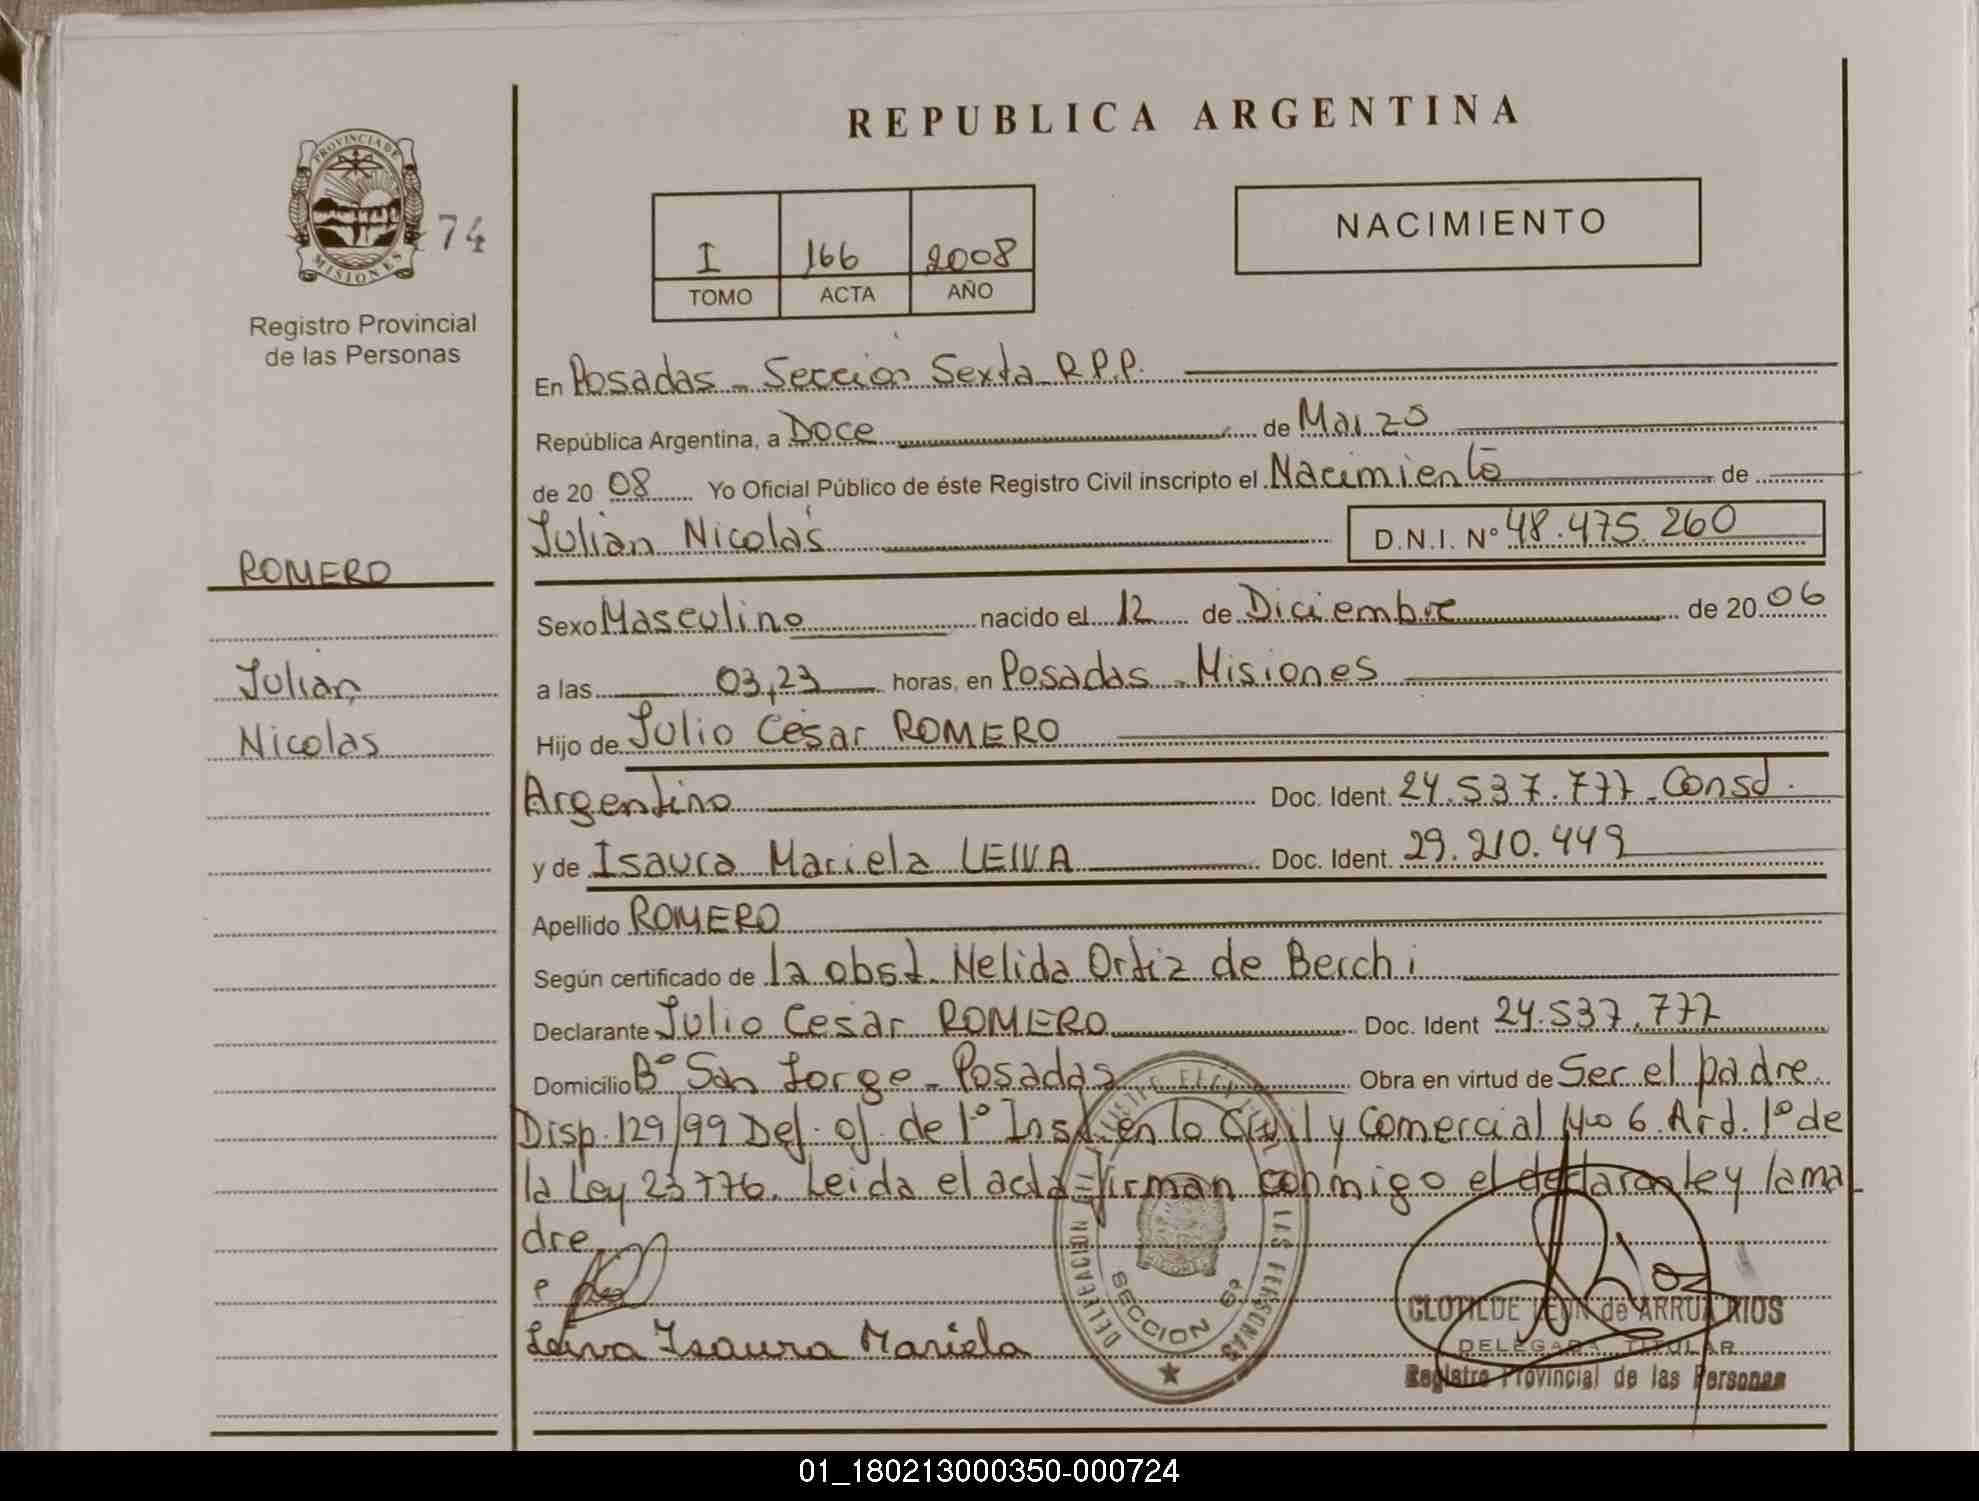 REPUBLICA ARGENTINA
PROVINCIA DE
MISIONES
74
Registro Provincial
de las Personas
I 166 2008
TOMO ACTA AÑO
NACIMIENTO
En Posadas - Sección Sexta R.P.P.
República Argentina, a Doce de Marzo
de 20 08 Yo Oficial Público de éste Registro Civil inscripto el Nacimiento de
Julián Nicolás D.N.I. Nº 48.475.260
ROMERO
Julian
Nicolas
Sexo Masculino nacido el 12 de Diciembre de 20 06
a las 03,23 horas, en Posadas - Misiones
Hijo de Julio César ROMERO
Argentino Doc. Ident. 24.537.777 - Consd.
y de Isaura Mariela LEIVA Doc. Ident. 29.210.449
Apellido ROMERO
Según certificado de la obst. Nelida Ortiz de Berchi
Declarante Julio Cesar ROMERO Doc. Ident 24.537.777
Domicilio Bº San Jorge - Posadas Obra en virtud de Ser el padre
Disp. 129/99 Def. of. de 1º Inst. en lo Civil y Comercial Nº 6 Art. 1º de
la Ley 23776. Leida el acta firman conmigo el declarante y la ma
dre
Leiva Isaura Mariela
DELEGACION
LAS PERSONAS
SECCION 6ª
CLOTILDE LEON de ARRUA RIOS
DELEGADA TITULAR
Registro Provincial de las Personas
01_180213000350-000724